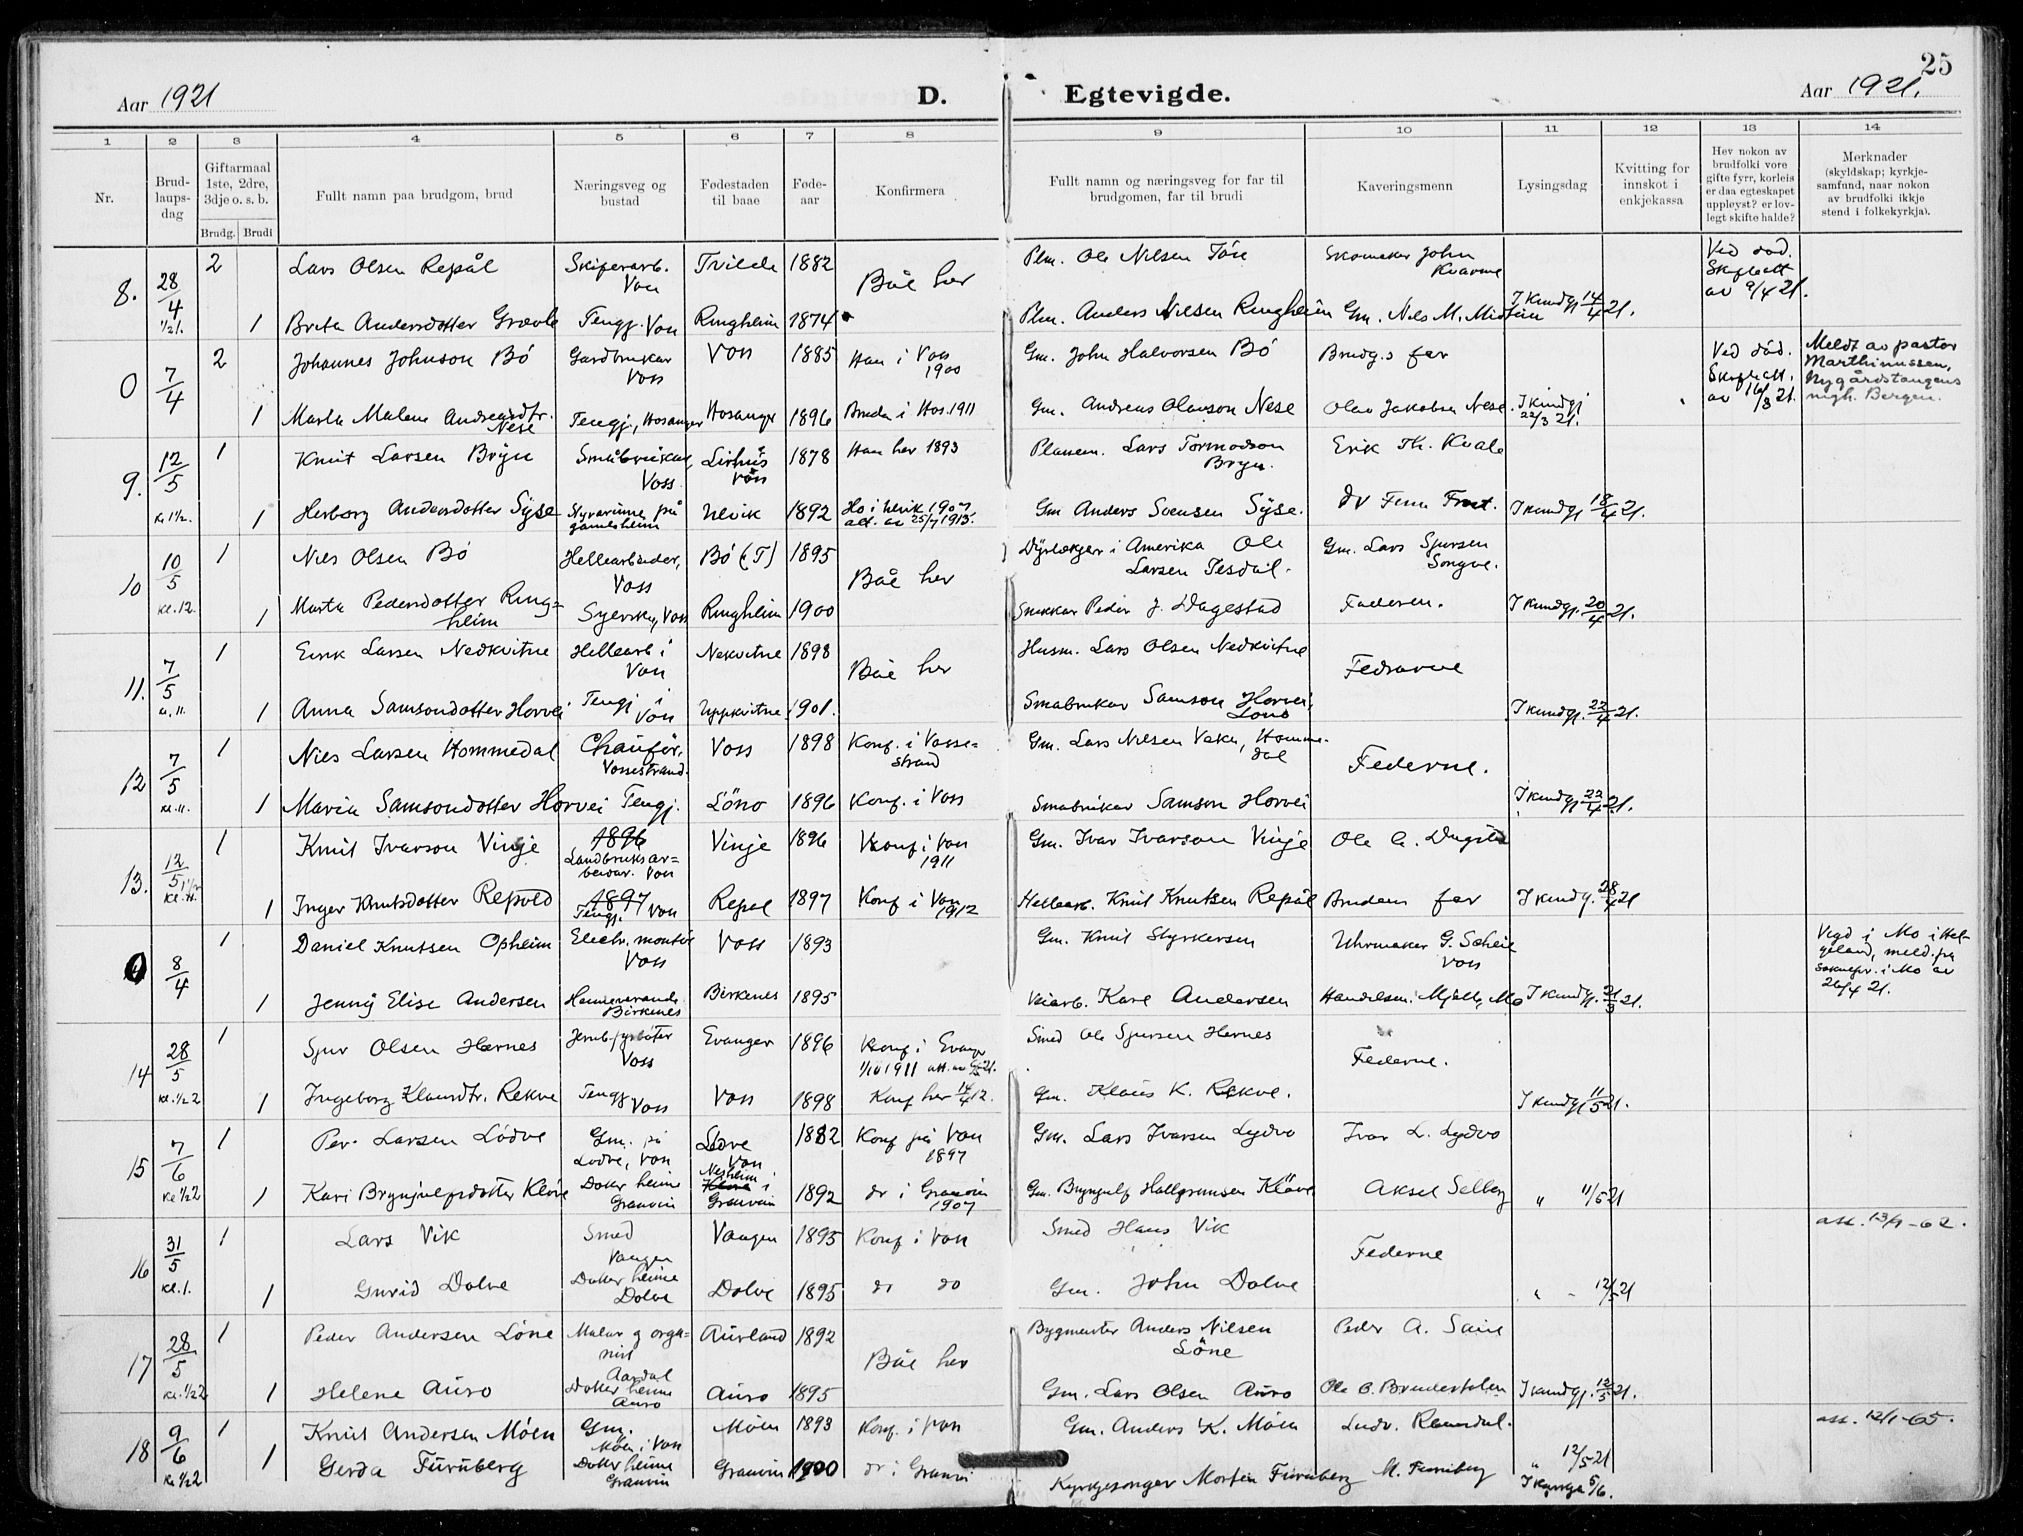 25
Aar 1921 D. Egtevigde. Aar 1921.
1 2 3 4 5 6 7 8 9 10 11 12 13 14
Nr.
Brud-
laups-
dag
Giftarmaal
1ste, 2dre,
3dje o. s. b.
Brudg. Brudi
Fullt namn paa brudgom, brud
Næringsveg og
bustad
Fødestaden
til baae
Føde-
aar
Konfirmera
Fullt namn og næringsveg for far til
brudgomen, far til brudi
Kaveringsmenn
Lysingsdag
Kvitting for
innskot i
enkjekassa
Hev nokon av
brudfolki vore
gifte fyrr, korleis
er daa egteskapet
uppløyst? er lov-
legt skifte halde?
Merknader
(skyldskap; kyrkje-
samfund, naar nokon
av brudfolki ikkje
stend i folkekyrkja).
8. 28/4 2 Lars Olsen Repål Skiferarb. Voss Tvilde 1882 Båe her Plm. Ole Nilsen Skomaker John Kvarme Ved død. Skifteatt av 9/4 21.
1 Brita Andersdotter Grovle Tengj. Voss Ringheim 1874 Plm. Anders Nilsen Ringheim Gm. Nils M. I kundgj 14/4 21.
0 7/4 2 Johannes Johnson Bö Gardbrukar Voss Voss 1885 Han i Voss 1900 Gm. John Halvorsen Bö Brudg.s far Ved död. Skifteatt. av 16/3 21. Meldt av pastor Marthinussen, Nygårdstangens migh. Bergen.
1 Marta Malene Andreasdtr. Nese Tengj., Hosanger Hosanger 1896 Bruda i Hos. 1911 Gm. Andreas Olavson Nese Olav Jakobsen Nese. I kundgj 22/3 21.
9. 12/5 kl 1½. 1 Knut Larsen Bryn Småbrukar, Voss. Lirhus Voss 1878 Han her 1893 Plassm. Lars Tormodson Bryn. Erik Th. Kvale
1 Herborg Andersdotter Syse Ulvik 1892 Ho i Ulvik 1907 att. av 25/7 1913. Gm Anders Svensen Syse. I kundgj 18/4 21.
10 10/5 kl. 12. 1 Nils Olsen Bö Hellearbeider, Voss Bö (T) 1895 Båe her Dyrlækjar i Amerika Ole Larsen Tesdal. Gm. Lars Sjursen Songve.
1 Marta Pedersdotter Ring=heim Syerska, Voss Ringheim 1900 Snikkar Peder J. Dagestad Faderen. I kundgj. 20/4 21.
11. 7/5 kl. 11. 1 Eirik Larsen Nedkvitne Hellearb i Voss Nekvitne 1898 Båe her Husm. Lars Olsen Nedkvitne Fedrarne
1 Anna Samsondotter Horvei Tengj i Voss Uppkvitne 1901. Småbrukar Samson Horvei, Lono I kundgj. 22/4 21.
12 7/5 kl. 11. 1 Nils Larsen Hommedal Chaufør, Vossestrand. Voss 1898 Konf. i Vosse=strand Gm. Lars Nilsen Homme-dal Federne.
1 Maria Samsondotter Horvei Tengj. Löno 1896 Konf. i Voss Småbrukar Samson Horvei I kundgj 22/4 21.
13. 12/5 1 Knut Ivarson Vinje 1896 Landbruksar=beidar. Voss Vinje 1896 Konf i Voss 1911 Gm. Ivar Ivarson Vinje Ole
1 Inger Knutsdotter Repold 1897 Tengj. Voss Repal 1897 Konf i Voss 1912 Hellearb. Knut Knutsen Repål Brudens far I kundg. 28/4 21
8/4 1 Daniel Knutsen Opheim Electr. montör Voss Voss 1893 Gm. Knut Styrkersen Uhrmaker G. Voss Vigd i Mo i Hel-geland, meld. frå soknepr. i Mo av 26/4 21.
1 Jenny Elise Andersen Birkenes Birkenes 1895 Veiarb. Karl Andersen Mo I kundgj. 21/3 21.
14 28/5 kl. ½2 1 Sjur Olsen Hernes Jernb. fyrböter Voss Evanger 1896 Konf i Evanger 1/10 1911 Smed Ole Sjursen Hernes Federne.
1 Ingeborg Klausdtr. Rekve Tengj Voss Voss 1898 Konf her 14/4 12. Gm. Klaus K. Rekve. I kundgj 11/5 21.
15 7/6 kl ½2 1 Per Larsen Lödve Gm. på Lodve, Voss Lödve Voss 1882 Konf på Voss 1897 Gm. Lars Ivarsen Lydvo Ivar L. Lydvo
1 Kari Brynjulfsdotter Klöve Dotter heime Granvin Nesheim i Granvin 1892 do i Granvin 1907 Gm. Brynjulf Hallgrimsen Klöve Aksel Selberg " 11/5 21
16 31/5 kl. 1. 1 Lars Vik Smed Vangen Vangen 1895 Konf i Voss Smed Hans Vik Federne att. 13/9-62.
1 Gurid Dolve Dotter heime Dolve Dolve 1895 do do Gm. John Dolve " 12/5 21
17 28/5 kl. ½2 1 Peder Andersen Löne Malar og orga=nist Aardal Aurland 1892 Båe her Bygmester Anders Nilsen Löne Peder A.
1 Helene Auro Dotter heime Auro Auro 1895 Gm. Lars Olsen Auro Ole I kundgj. 12/5 21.
18 9/6 kl ½2 1 Knut Andersen Möen Gm. Möen i Voss Möen 1893 Konf. i Voss Gm. Anders K. Möen Ludv. att. 12/1-65.
1 Gerda Furuberg Dotter heime Granvin Granvin 1900 do i Granvin Kyrkjesonger Morten Furuberg M. Furuberg " 12/5 21